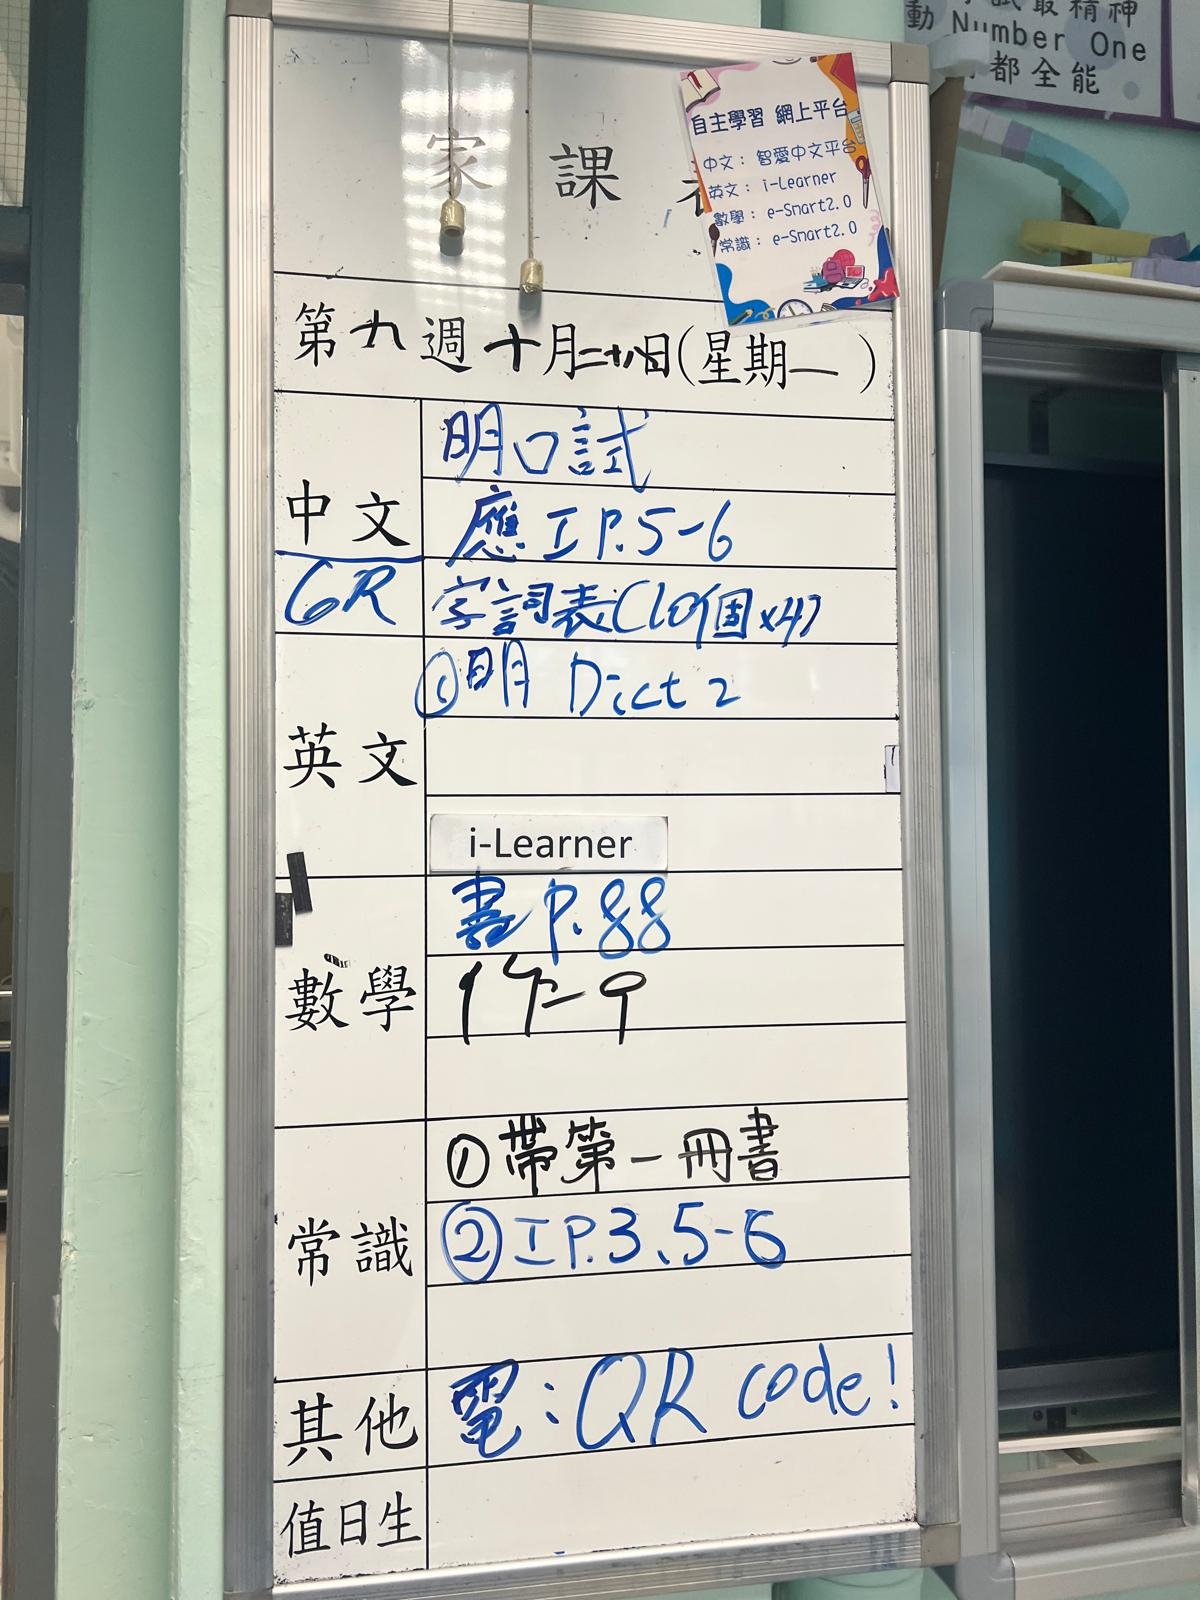 試最精神
動 Number One
都全能
自主學習 網上平台
中文：智愛中文平台
英文：i-Learner
數學：e-Smart2.0
常識：e-Smart2.0
家課
第九週十月二十八日(星期一)
中文
明口試
應工P.5-6
GR
字詞表(10個x4)
英文
①明 Dict 2
i-Learner
數學
書P.88
常識
①帶第一冊書
②工P.3、5-6
其他
電：QR code!
值日生